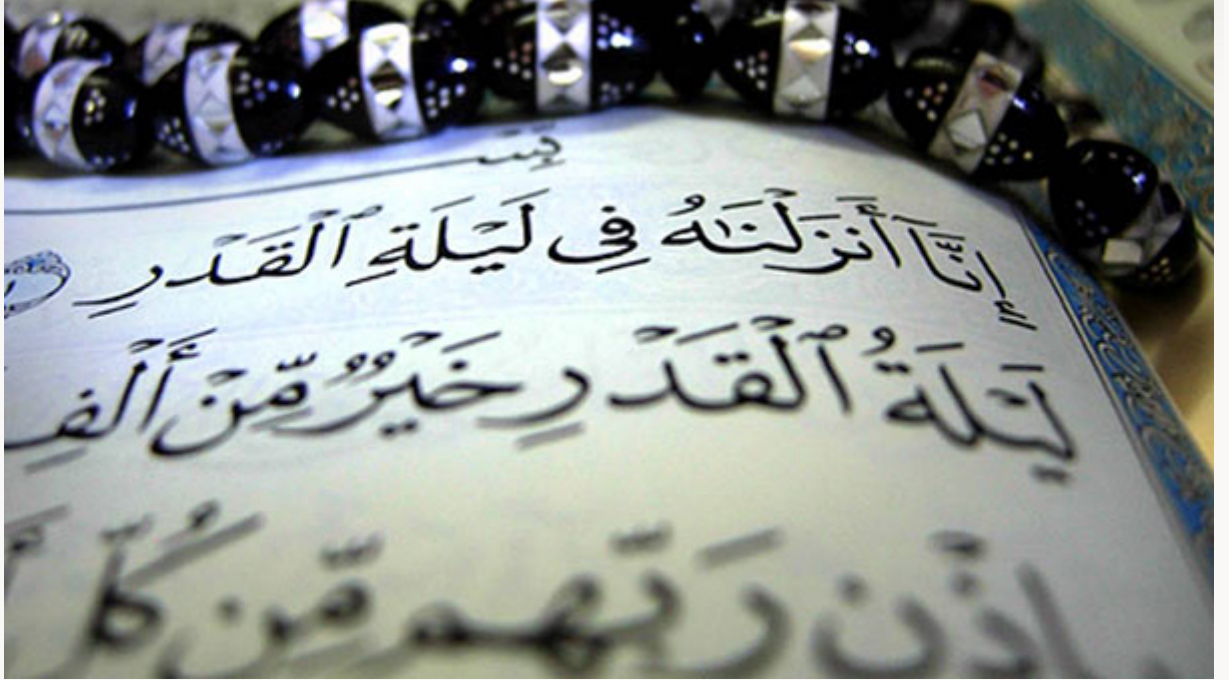 بِسْ
إِنَّآ أَنزَلْنَٰهُ فِى لَيْلَةِ ٱلْقَدْرِ
لَيْلَةُ ٱلْقَدْرِ خَيْرٌ مِّنْ أَلْفِ
بِإِذْنِ رَبِّهِم مِّن كُلِّ